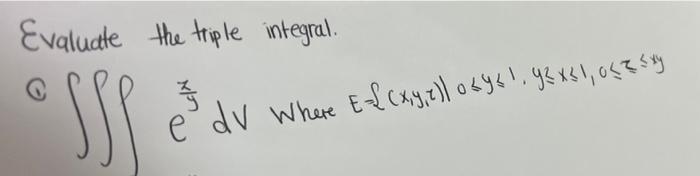 Evaluate the triple integral.
① ∭ e^(z/y) dV Where E={(x,y,z)| 0≤y≤1, y≤x≤1, 0≤z≤xy